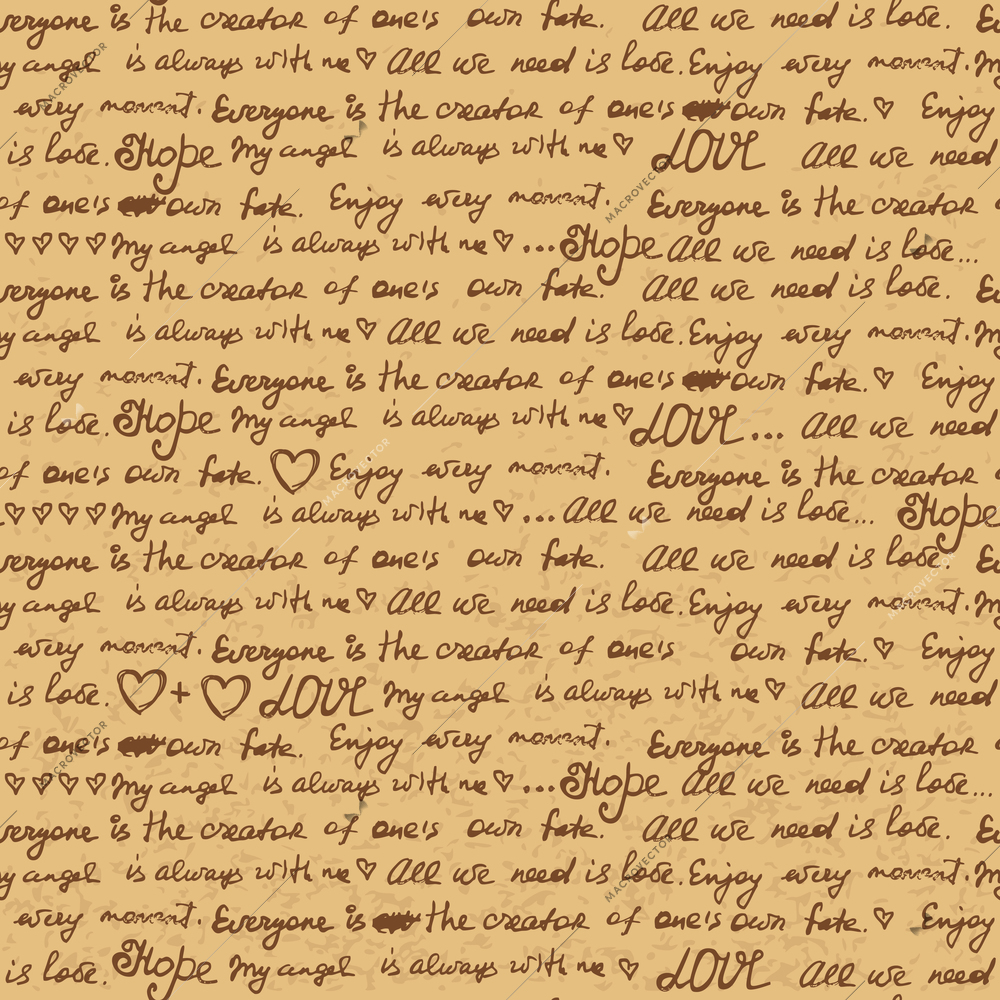 veryone is the creator of one's own fate. All we need is love. E
y angel is always with me♡ All we need is love. Enjoy every moment. M
every moment. Everyone is the creator of one's own fate.♡ Enjoy
is love. Hope My angel is always with me♡ LOVE All we need
of one's own fate. Enjoy every moment. Everyone is the creator
♡♡♡♡ My angel is always with me♡ ... Hope All we need is love...
veryone is the creator of one's own fate. All we need is love. E
y angel is always with me♡ All we need is love. Enjoy every moment. M
every moment. Everyone is the creator of one's own fate.♡ Enjoy
is love. Hope My angel is always with me♡ LOVE... All we need
of one's own fate. ♡ Enjoy every moment. Everyone is the creator
♡♡♡♡ My angel is always with me♡ ... All we need is love... Hope
veryone is the creator of one's own fate. All we need is love. E
y angel is always with me♡ All we need is love. Enjoy every moment. M
every moment. Everyone is the creator of one's own fate.♡ Enjoy
is love. ♡+♡ LOVE My angel is always with me♡ All we need
of one's own fate. Enjoy every moment. Everyone is the creator
♡♡♡♡ My angel is always with me♡ ... Hope All we need is love...
veryone is the creator of one's own fate. All we need is love. E
y angel is always with me♡ All we need is love. Enjoy every moment. M
every moment. Everyone is the creator of one's own fate.♡ Enjoy
is love. Hope My angel is always with me ♡ LOVE All we need
MACROVECTOR
MACROVECTOR
MACROVECTOR
MACROVECTOR
MACROVECTOR
MACROVECTOR